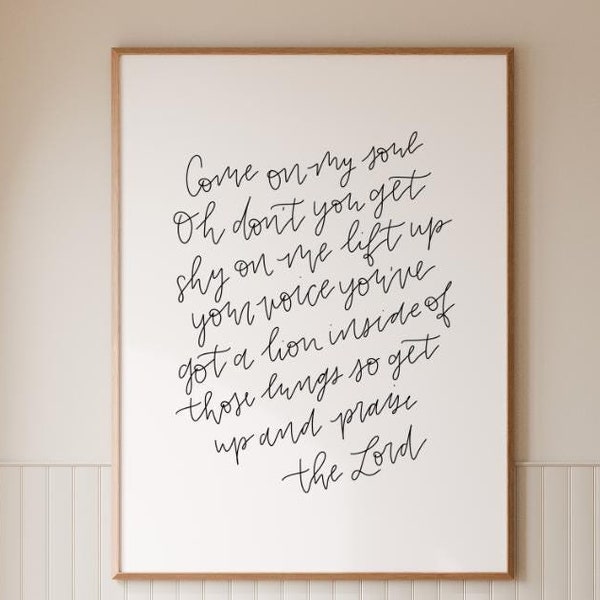 Come on my soul
Oh don't you get
shy on me lift up
your voice you've
got a lion inside of
those lungs so get
up and praise
the Lord